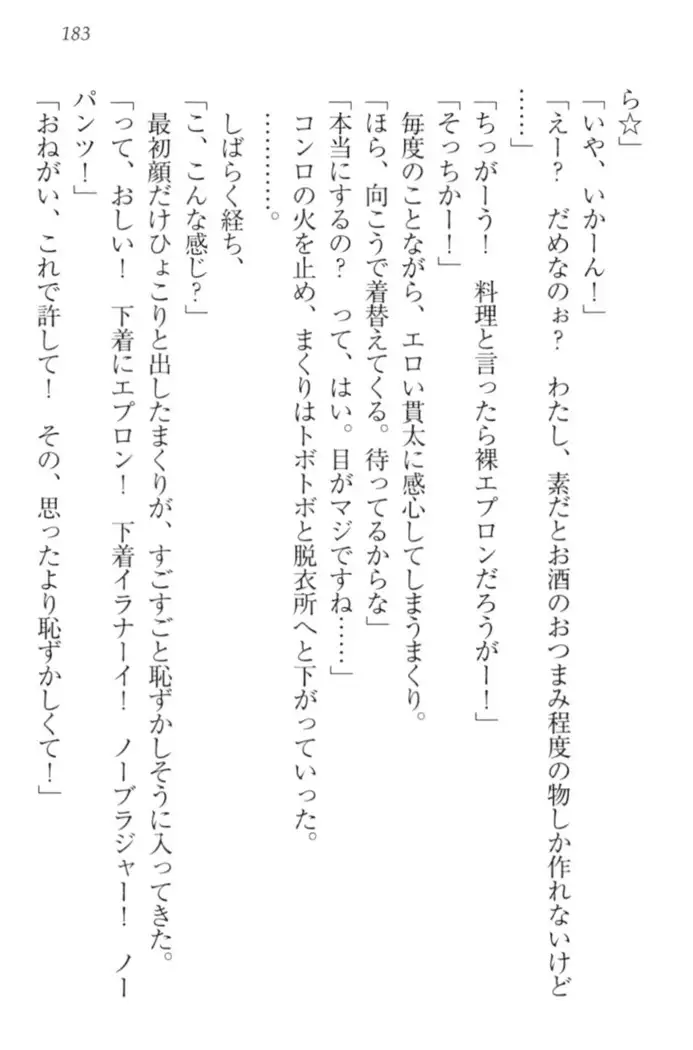 183
ら☆」
「いや、いかーん！」
「えー？　だめなのぉ？　わたし、素だとお酒のおつまみ程度の物しか作れないけど
……」
「ちっがーう！　料理と言ったら裸エプロンだろうがー！」
「そっちかー！」
毎度のことながら、エロい貫太に感心してしまうまくり。
「ほら、向こうで着替えてくる。待ってるからな」
「本当にするの？　って、はい。目がマジですね……」
コンロの火を止め、まくりはトボトボと脱衣所へと下がっていった。
…………。
しばらく経ち、
「こ、こんな感じ？」
最初顔だけひょこりと出したまくりが、すごすごと恥ずかしそうに入ってきた。
「って、おしい！　下着にエプロン！　下着イラナーイ！　ノーブラジャー！　ノー
パンツ！」
「おねがい、これで許して！　その、思ったより恥ずかしくて！」